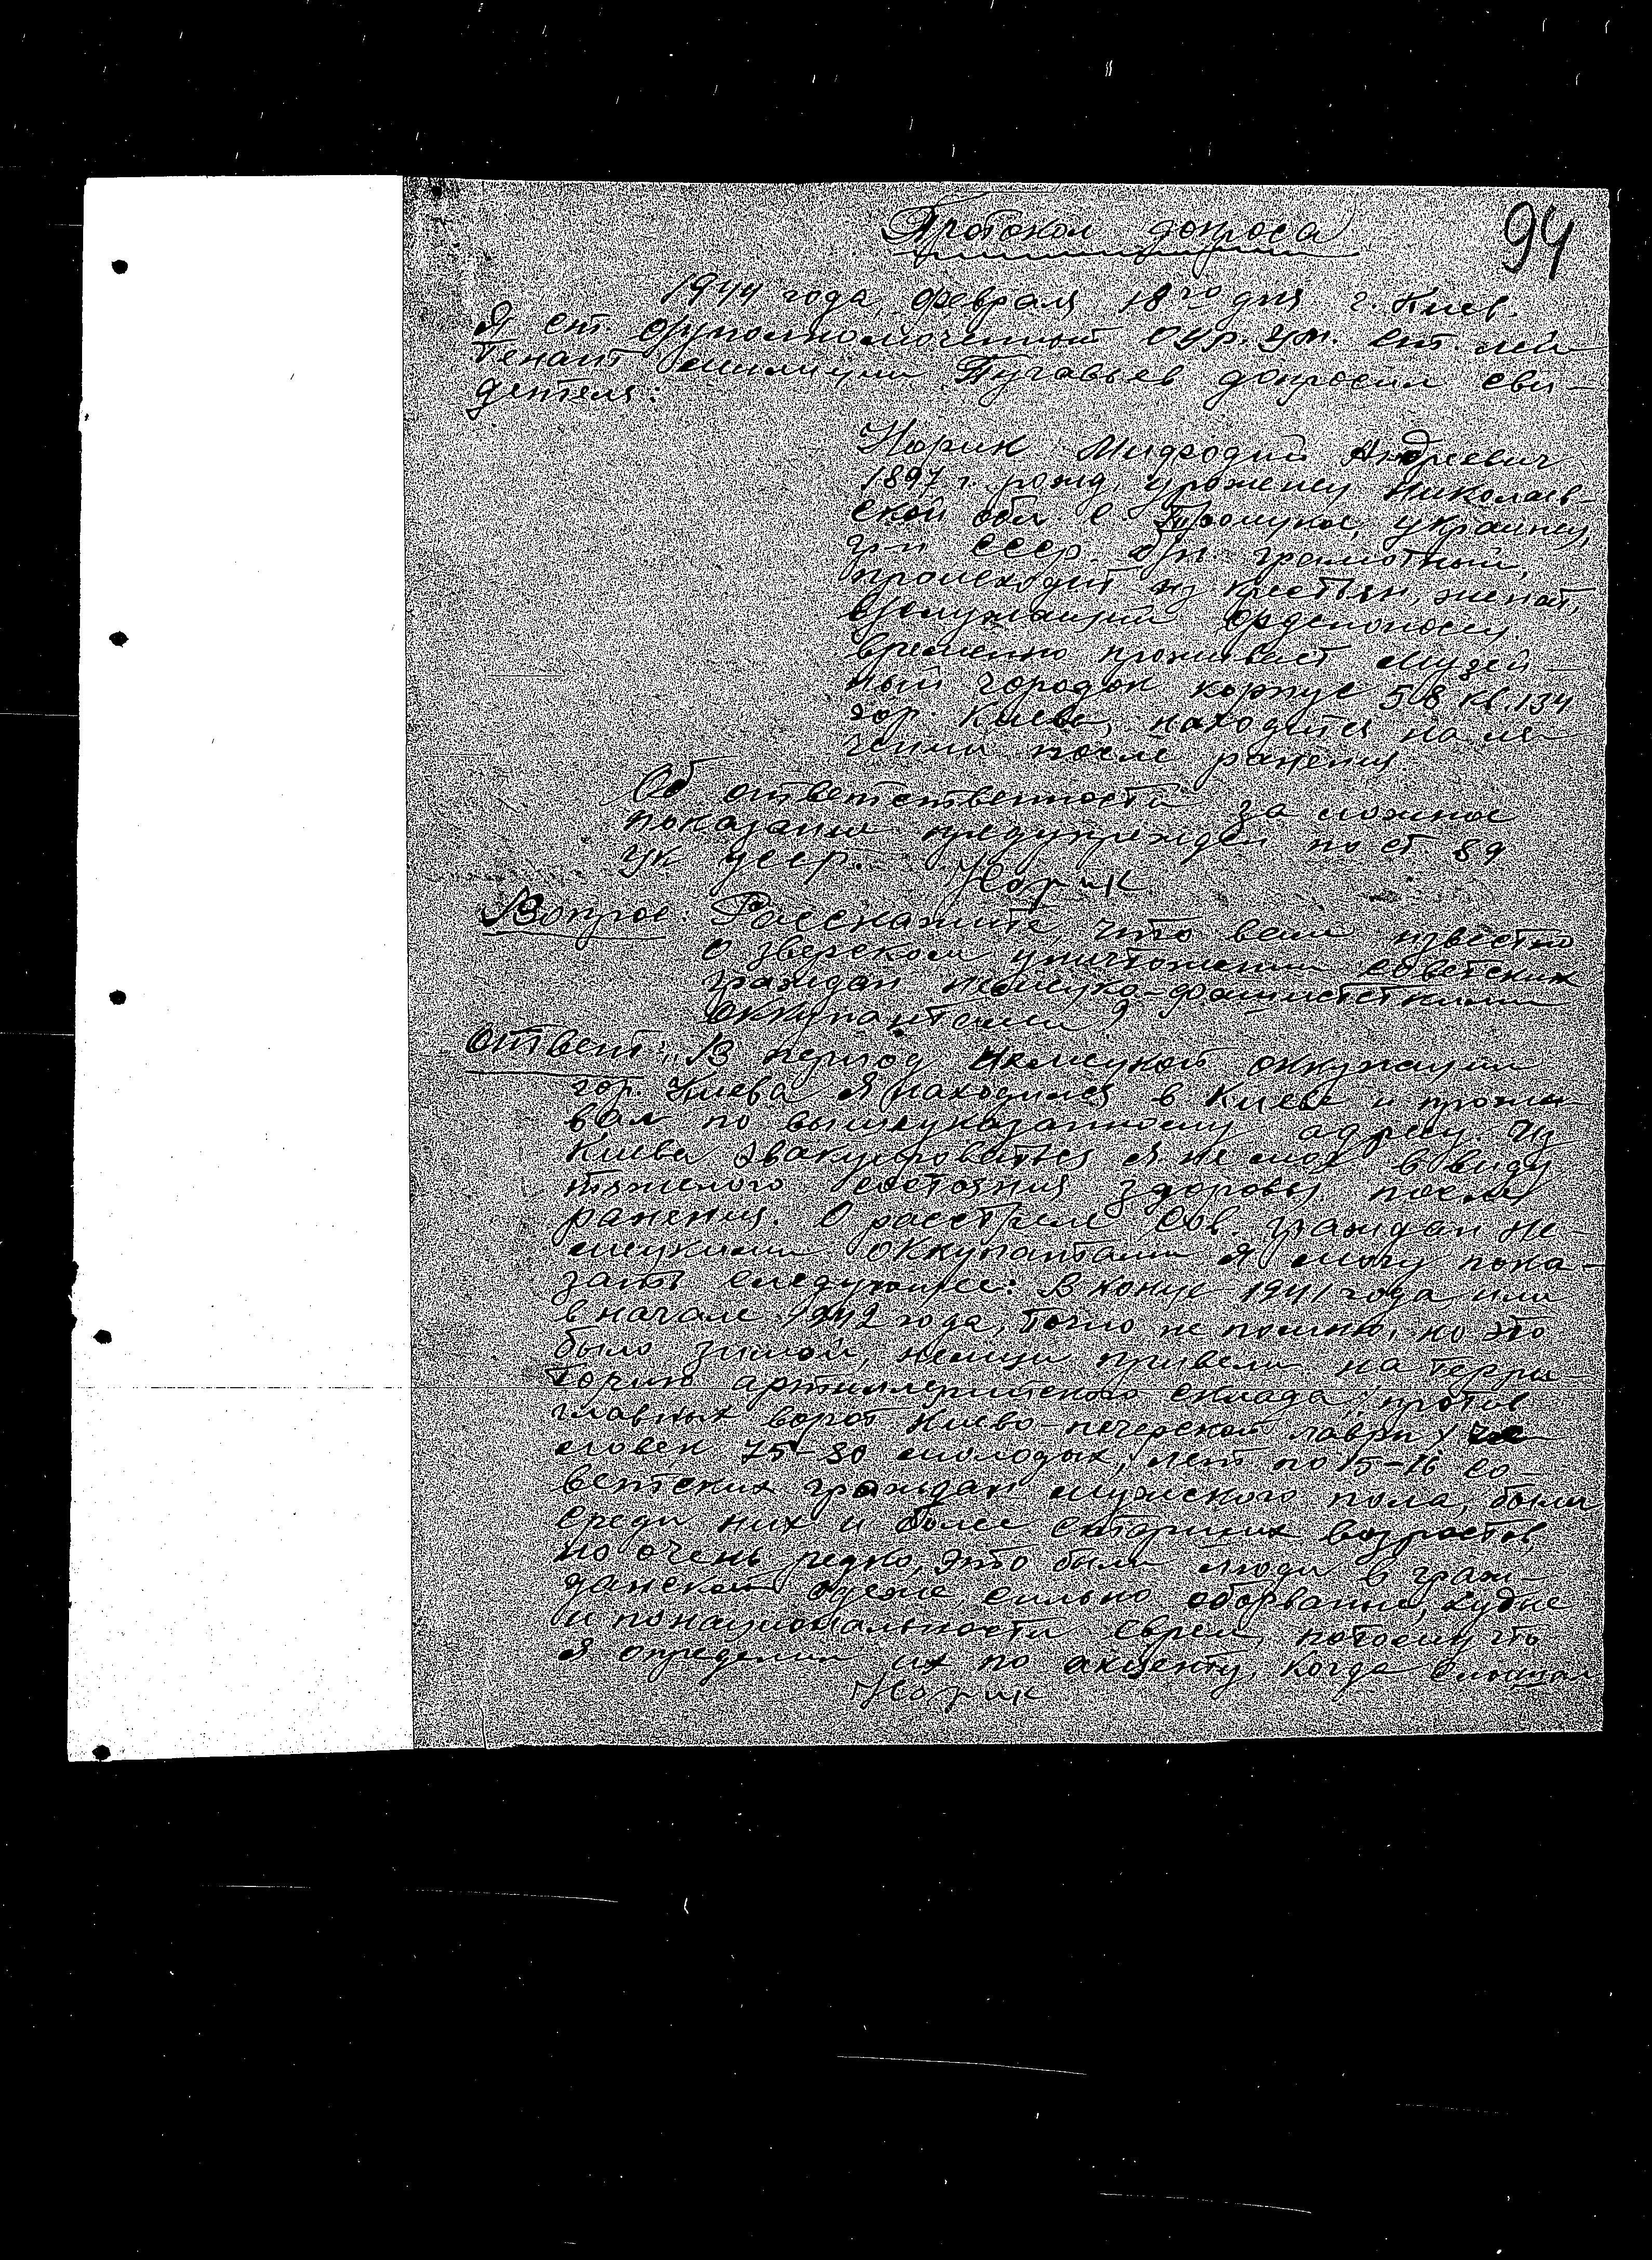 94
Протокол допроса
1944 года, февраля 18го дня г. Киев.
Я ст. оуполномоченный ОУР. УМ. ст. лей
тенант милиции Пугавьев допросил сви-
детеля:
Норик Мифодий Андреевич
1897 г. рожд, уроженец Николаев-
ской обл. с. украинец,
гр-н СССР. б/п. грамотный,
происходит из крестьян, женат,
служащий орденоносец.
временно проживает Музей-
ный городок корпус 58 кв. 134
гор. Киева, находится на ле-
чении после ранения
Об ответственности за ложное
показание предупрежден по ст 89
УК УССР. Норик
Вопрос: Росскажите, что вам известно
о зверском уничтожении советских
граждан немецко-фашистскими
оккупантами?
Ответ: „В период немецкой оккупации
гор. Киева я находился в Киеве и прожи
вал по вышеуказанному адресу. Из
Киева эвакуироваться я не мог в виду
тяжелого состояния здоровья после
ранения. О расстреле Сов. граждан не-
мецкими оккупантами я могу пока-
зать следующее: В конце 1941 года или
в начале 1942 года, точно не помню, но это
было зимой, немцы привели на терри-
торию артиллерийского склада, против
главных ворот Киево-печерской лавры,
еловек 75-80 молодых, лет по 15-16 со-
ветских граждан мужского пола, были
среди них и более старших возрастов,
но очень редко, это были люди в граж-
данской одеже, сильно оборваные, худые
и по национальности евреи, потому что
я определил их по акценту, когда слышал
Норик